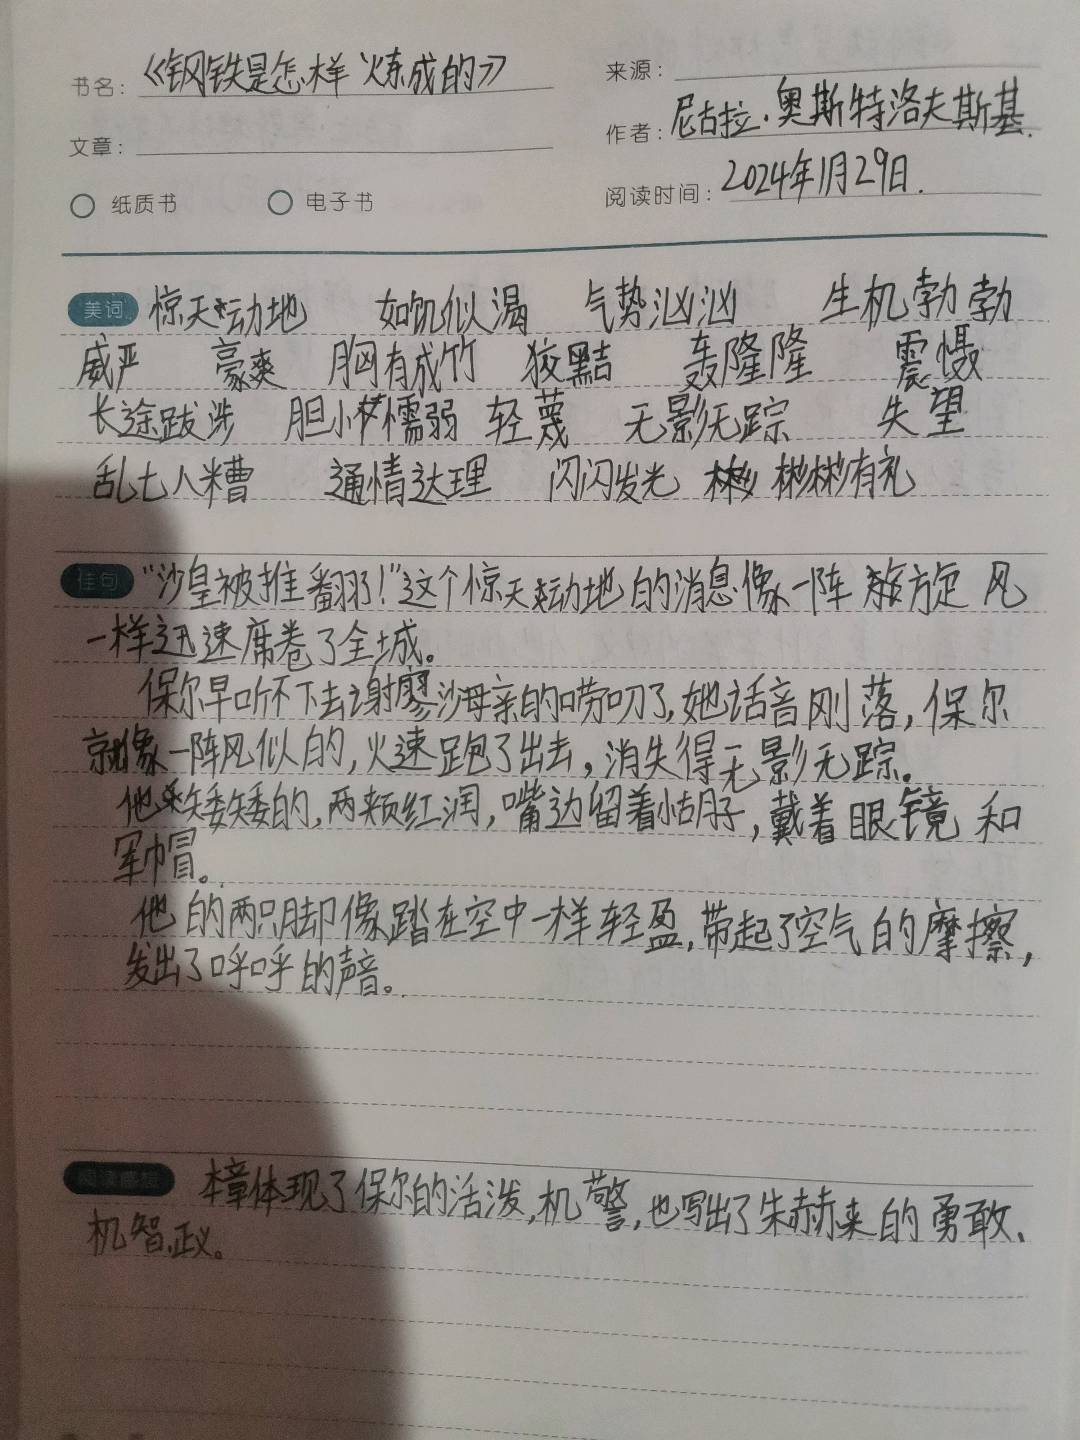 书名：《钢铁是怎样炼成的》
来源：
作者：尼古拉·奥斯特洛夫斯基.
文章：
纸质书 电子书
阅读时间：2024年1月29日.
美词 惊天动地 如饥似渴 气势汹汹 生机勃勃
威严 豪爽 胸有成竹 狡黠 轰隆隆 震慑
长途跋涉 胆小懦弱 轻蔑 无影无踪 失望
乱七八糟 通情达理 闪闪发光 彬彬有礼
佳句 “沙皇被推翻了！”这个惊天动地的消息像一阵旋风
一样迅速席卷了全城。
保尔早听不下去谢廖沙母亲的唠叨了，她话音刚落，保尔
就像一阵风似的，火速跑了出去，消失得无影无踪。
他矮矮的，两颊红润，嘴边留着小胡子，戴着眼镜和
军帽。
他的两只脚像踏在空中一样轻盈，带起了空气的摩擦，
发出了呼呼的声音。
阅读感想 本章体现了保尔的活泼，机警，也写出了朱赫来的勇敢、
机智，正义。